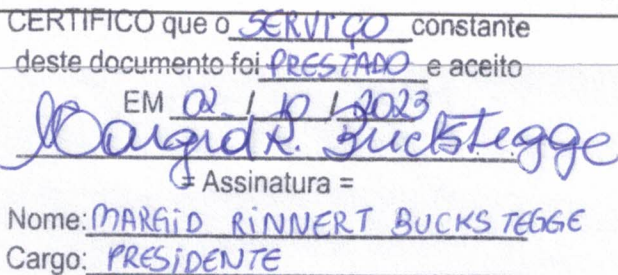 CERTIFICO que o SERVIÇO constante
deste documento foi PRESTADO e aceito
EM 02 / 10 / 2023
Margid R. Buckstegge
= Assinatura =
Nome: MARGID RINNERT BUCKSTEGGE
Cargo: PRESIDENTE